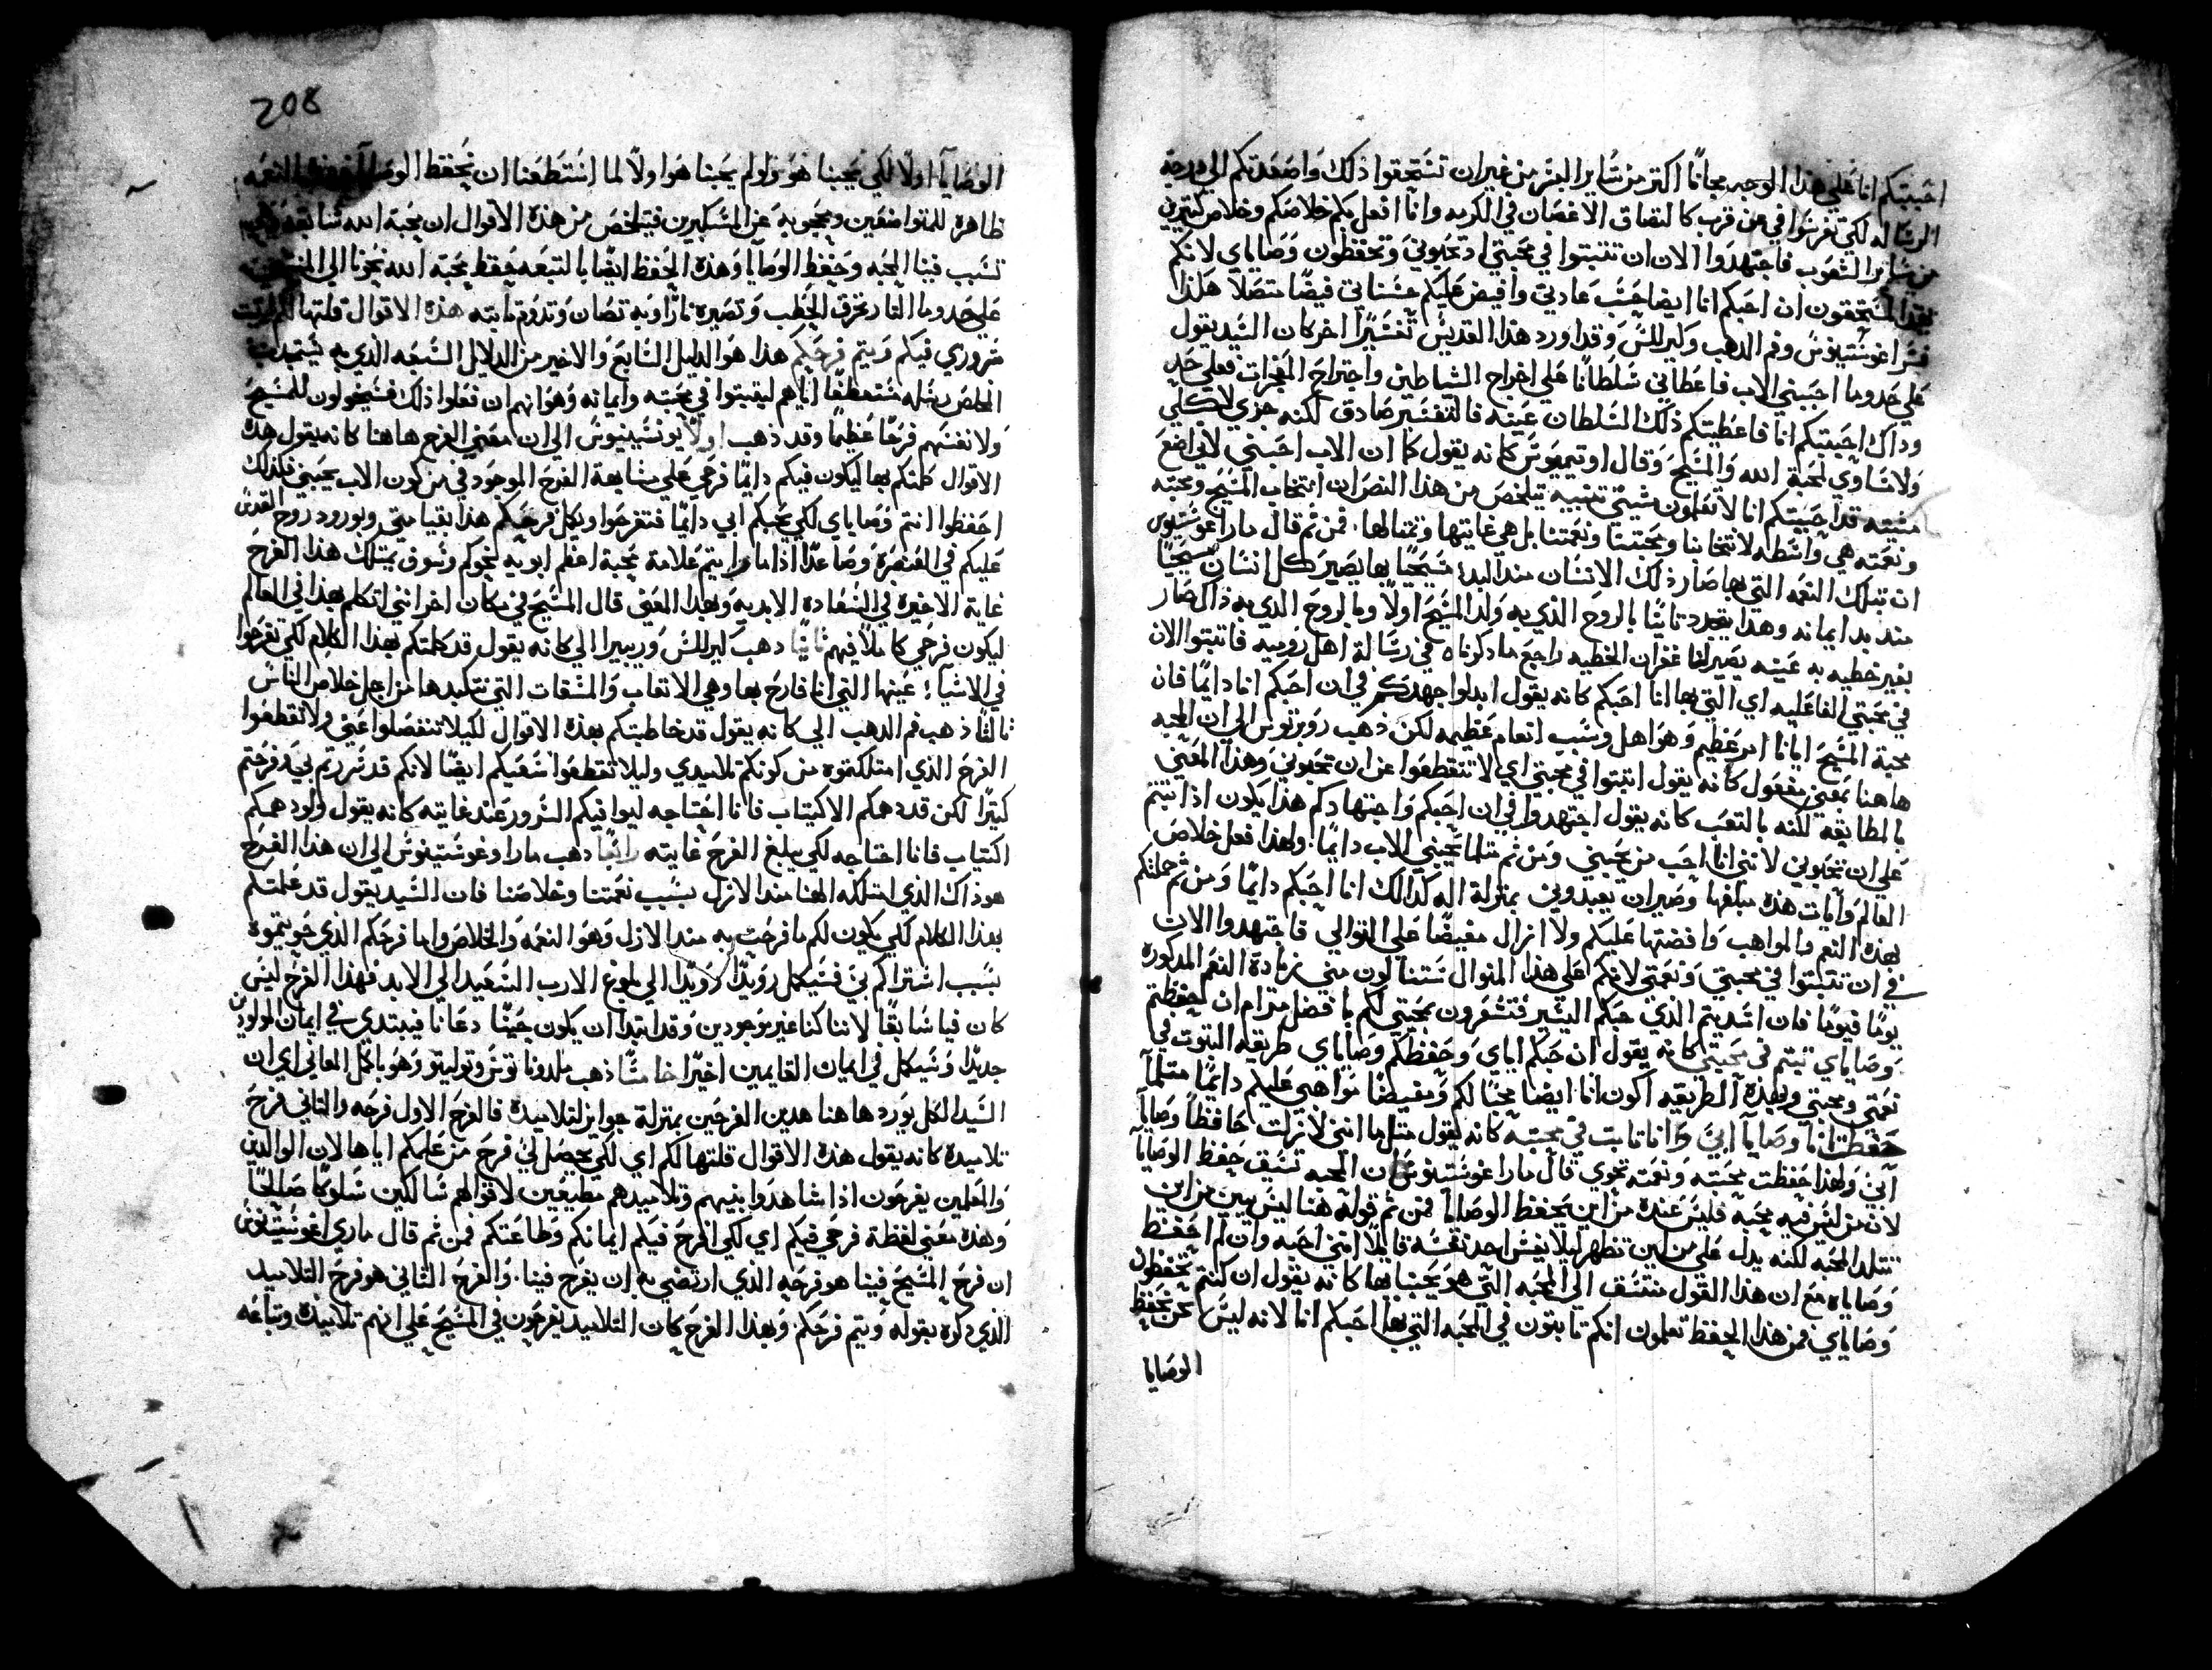 احببتكم انا على هذا الوجه مجانًا اكتر من ساير البشر من غير ان تستحقوا ذلك واصعدتكم الى درجة
الرساله لكي تغرسوا في من قرب كالتصاق الاغصان في الكرمه وانا افعل بكم خلاصكم وخلاص كتيرين
من ساير الشعوب فاجتهدوا الان ان تتبتوا في محبتي اد تحبوني وتحفظون وصاياي لانكم
بهذا تستحقون ان احبكم انا ايضا حسب عادتي وافيض عليكم حسناتي فيضًا متصلا هكذا
فسر اغوستينوس وفم الدهب وكيرللس وقد اورد هذا القديس تفسيرًا اخر كان السيد يقول
على حدوما احبني الاب فاعطاني سلطانًا على اخراج الشياطين واجتراح المعجزات فعلى حد
وداك احببتكم انا فاعطيتكم ذلك السلطان عينه فالتفسير صادق لكنه جزي لا كلي
ولا تساوي لمحبة الله والمسيح وقال اوتيميوس كانه يقول كما ان الاب احبني لاني اضع
مشيته قد احببتكم انا لا تعملون مشيتي تنبيه يتلخص من هذا النص ان انتخاب المسيح ومحبته
ونعمته هي واسطه لانتخابنا ومحبتنا ونعمتنا بل هي غايتها وتمثالها. فمن تم قال مار اغوستينوس
ان بتلك النعمه التي بها صار ذلك الانسان منذ البدء مسيحيًا بها يصير كل انسان مسيحيًا
منذ بدا ايمانه وهذا يتجدد تانيًا بالروح الذي به ولد المسيح اولًا وبالروح الذي به ذاك صار
بغير خطيه به عينه يصير لنا غفران الخطيه راجع ما دكرناه في رسالة اهل روميه فاتبتوا الان
في محبتي الفاعليه اي التي بها انا احبكم كانه يقول ابدلوا جهدكم في ان احبكم انا دايمًا فان
محبة المسيح ايانا امر عظيم وهو اهل وسبب انعام عظيمه لكن ذهب روبرتوس الى ان المحبه
هاهنا بمعنى مفعول كانه يقول اتبتوا في محبتي اي لا تنقطعوا عن ان تحبوني وهذا المعنى
بالمطابقه لكنه بالتعب كانه يقول اجتهدوا في ان احبكم واجتهادكم هذا يكون اذا تبتم
على ان تحبوني لانني انا احب من يحبني ومن تم متلما يحبني الاب دايمًا. ولهذا فعل خلاص
العالم وايات هذه مبلغها وصيران يعبدوني بمنزلة اله كدالك انا احبكم دايمًا ومن تم حملتكم
بهذه النعم والمواهب وافضتها عليكم ولا ازال مفيضًا على التوالي فاجتهدوا الان
في ان تتبتوا في محبتي ونعمتي لانكم على هذا المنوال ستنالون مني زيادة النعم المدكوره
يومًا فيومًا فان اشديتم الذي حبكم اليسير فتشعرون بمحبتي لكم بافضل مرام ان حفظتم
وصاياي تبتم في محبتي كانه يقول ان حبكم اياي وحفظكم وصاياي طريقه التبوت في
نعمتي ومحبتي وبهذه الطريقه اكون انا ايضا محبًا لكم ومفيضًا مواهبي عليكم دايمًا متلما
حفظت انا وصايا ابي وانا تابت في محبته كانه يقول متل ما انني لا زلت حافظًا وصايا
ابي ولهذا حفظت محبته ونعمته نحوي قال مار اغوستينوس ان المحبه تسبق حفظ الوصايا
لان من ليس فيه محبه فليس عنده من اين يحفظ الوصايا فمن تم قوله هنا ليس يبين من اين
تتلد المحبه لكنه يدل على من اين تظهر ليلا يغش احد نفسه قايلًا انني احبه وان لم احفظ
وصاياه مع ان هذا القول منتسق الى المحبه التي هو يحبنا بها كانه يقول ان كنتم تحفظون
وصاياي فمن هذا الحفظ تعلمون انكم تابتون في المحبه التي بها احبكم انا لانه ليس نحن نحفظ
الوصايا
208
الوصايا اولًا لكي يحبنا هو ولو لم يحبنا هو اولًا لما استطعنا ان نحفظ الوصايا فهذه النعمه
ظاهرة للمتواضعين ومحجوبه عن المتكبرين فيتلخص من هذه الاقوال ان محبة الله سابقه
تسبب فينا المحبه وحفظ الوصايا وهذه الحفظ ايضًا بالتبعه حفظ محبة الله نحونا الى المنتهى
على حدوما النار تحرق الحطب وتصيره نارًا وبه تصان وتدوم تابته هذه الاقوال قلتها لكم ليتبت
سروري فيكم ويتم فرحكم هذا هو الدليل السابع والاخير من الدلايل السبعه الذي به يستميل
المخلص رسله مستعطفًا اياهم ليتبتوا في محبته وايمانه وهو انهم ان فعلوا ذلك فسيخولون للمسيح
ولانفسهم فرحًا عظيمًا وقد ذهب اولًا يونسينيوس الى ان معنى الفرح هاهنا كانه يقول هذه
الاقوال كلمتكم بها ليكون فيكم دايمًا فرحي على مشابهة الفرح الموجود في من كون الاب يحبني فكذلك
احفظوا انتم وصاياي لكي يحبكم ابي دايمًا فتفرحوا ويكل فرحكم هذا بقيامتي وبورود روح القدس
عليكم في العنصرة وصاعدًا اذا ما رايتم علامة محبة اعظم ابويه نحوكم وسوف يمتلك هذا الفرح
غاية الاخيره في السعاده الابديه وبهذا المعنى قال المسيح في مكان اخر انني اتكلم بهذا في العالم
ليكون فرحي كاملًا فيهم تانيًا دهب كيرللس وريبيرا الى كانه يقول قد كلمتكم بهذا الكلام لكي تفرحوا
في الاشياء عينها التي انا فارح بها وهي الاتعاب والمشقات التي نتكبدها من اجل خلاص الناس
تالتًا ذهب فم الدهب الى كانه يقول قد خاطبتكم بهذه الاقوال لكيلا تنفصلوا عني ولا تقطعوا
الفرح الذي امتلكتموه من كونكم تلاميدي وليلا تقطعوا سعيكم ايضًا لانكم قد سررتم بي وفرحتم
كتيرًا لكن قد دهمكم الاكتياب فانا احتاجه ليوافيكم السرور عند غايته كانه يقول ولو دهمكم
اكتياب فانا احتاجه لكي يبلغ الفرح غايته رابعًا دهب مار اوغوستينوس الى ان هذا الفرح
هو ذاك الذي امتلكه الهنا منذ الازل بسبب نعمتنا وخلاصنا فان السيد يقول قد كلمتكم
بهذا الكلام لكي يكون لكم ما فرحت به منذ الازل وهو النعمه والخلاص واما فرحكم الذي حويتموه
بسبب اشتراككم بي فسيكمل رويدًا رويدًا الى بلوغ الارب السعيد الى الابد فهذا الفرح ليس
كان فينا سابقًا لاننا كنا غير موجودين وقد ابتدا ان يكون حينما دعانا فيبتدي في ايمان المولودين
جديدًا وسيكمل في ايمان القايمين اخيرًا خامسًا ذهب ملدوناتوس وتوليتو وهو باكمل المعاني اي ان
السيد الكل يورد هاهنا هدين الفرحين بمنزلة جوايز لتلاميده فالفرح الاول فرحه والتاني فرح
تلاميده كانه يقول هذه الاقوال قلتها لكم اي لكي يحصل لي فرح من علمكم اياها لان الوالدين
والمعلمين يفرحون اذا شاهدوا بنيهم وتلاميدهم مطيعين لاقوالهم سالكين سلوكًا صالحًا
وهذه معنى لفظة فرحي فيكم اي لكي افرح فيكم ايمانكم وطاعتكم فمن تم قال ماري اغوستينوس
ان فرح المسيح فينا هو فرحه الذي ارتضى به ان يفرح فينا. والفرح التاني هو فرح التلاميد
الذي دكره بقوله ويتم فرحكم. وبهذا الفرح كان التلاميد يفرحون في المسيح على انهم تلاميذه وتباعه